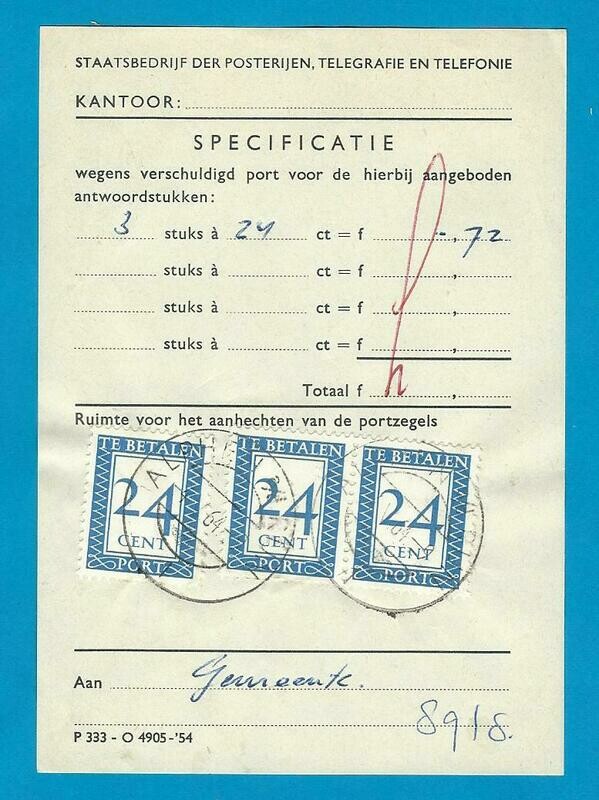 STAATSBEDRIJF DER POSTERIJEN, TELEGRAFIE EN TELEFONIE
KANTOOR:
SPECIFICATIE
wegens verschuldigd port voor de hierbij aangeboden
antwoordstukken:
3 stuks à 24 ct = f -, 72
stuks à ct = f ,
stuks à ct = f ,
stuks à ct = f ,
Totaal f ,
Ruimte voor het aanhechten van de portzegels
TE BETALEN TE BETALEN TE BETALEN
24 24 24
CENT CENT CENT
PORT PORT PORT
Aan Gemeente.
8918.
P 333 - O 4905-'54